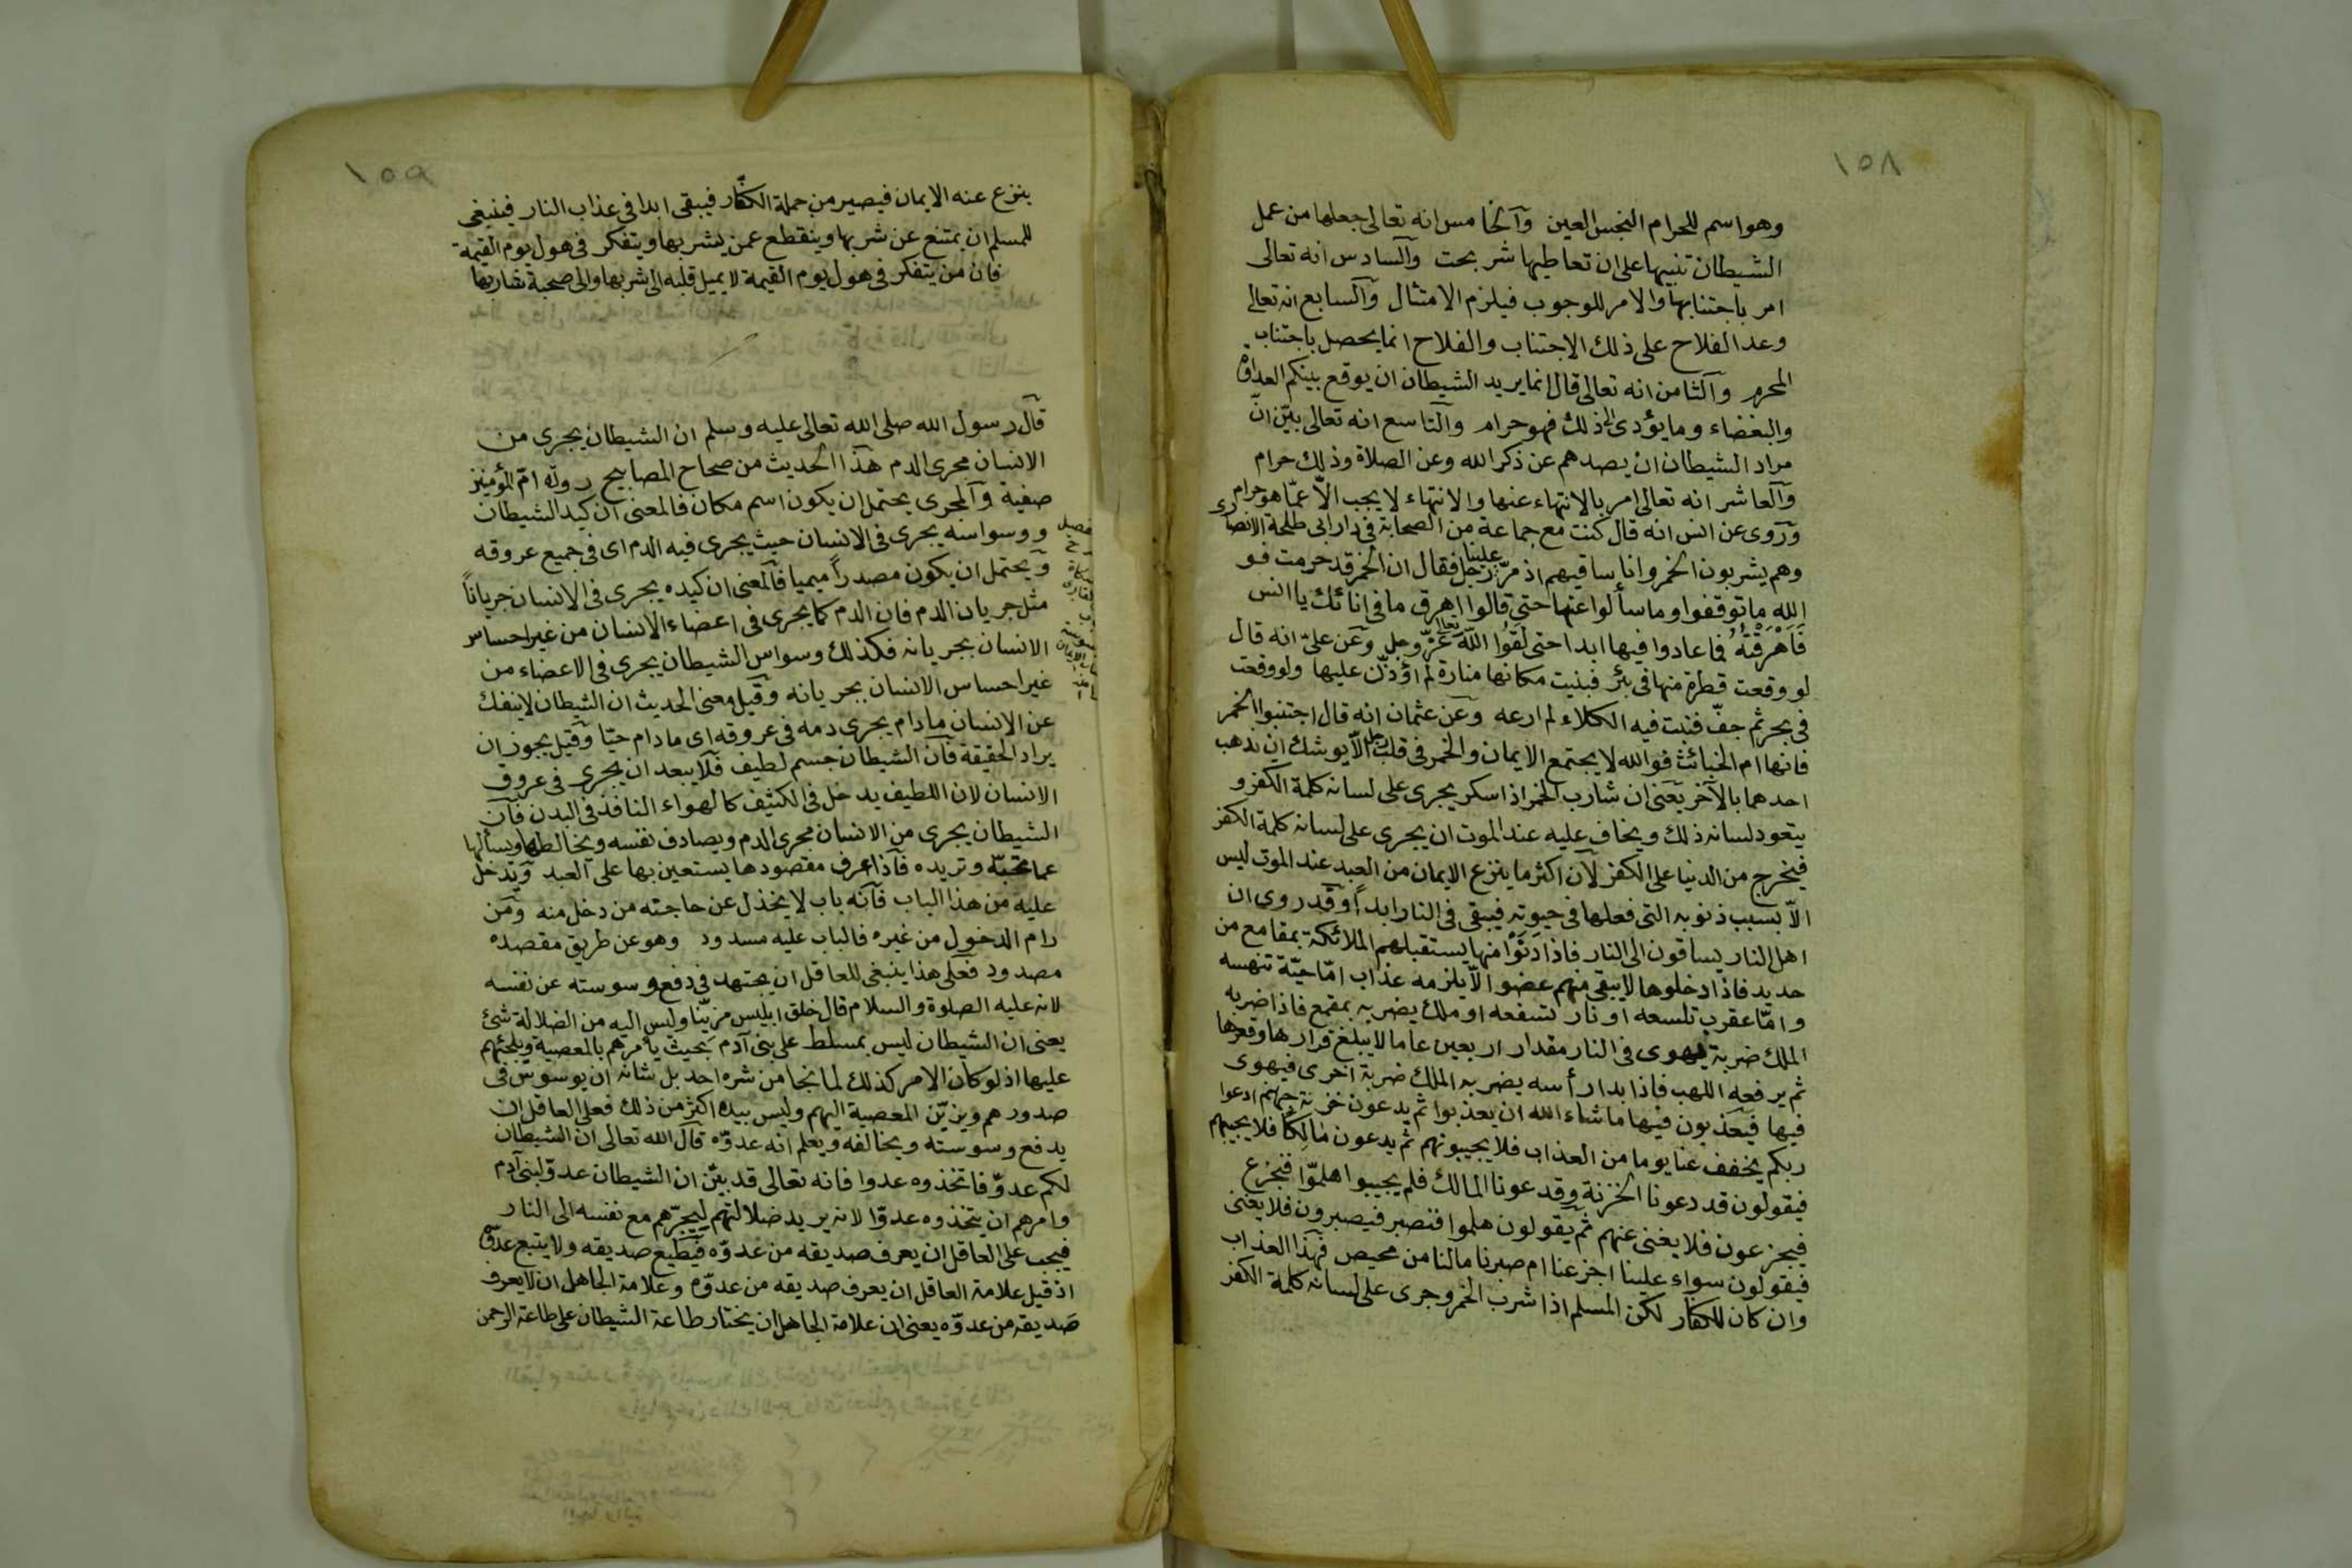 ١٥٨
وهو اسم للحرام النجس العين وآلخامس انه تعالى جعلها من عمل
الشيطان تنبيها على ان تعاطيها شر بحت وآلسادس انه تعالى
امر باجتنابها والامر للوجوب فيلزم الامتثال وآلسابع انه تعالى
وعد الفلاح على ذلك الاجتناب والفلاح انما يحصل باجتناب
المحرم وآلثامن انه تعالى قال انما يريد الشيطان ان يوقع بينكم العداوة
والبغضاء وما يؤدى الى ذلك فهو حرام وآلتاسع انه تعالى بيّن انّ
مراد الشيطان ان يصدهم عن ذكر الله وعن الصلاة وذلك حرام
وآلعاشر انه تعالى امر بالانتهاء عنها والانتهاء لا يجب الاّ عمّا هو حرام
وروى عن انس انه قال كنت مع جماعة من الصحابة فى دار ابى طلحة الانصارى
وهم يشربون الخمر وانا ساقيهم اذ مرّ علينا رجل فقال ان الخمر قد حرمت فو
الله ما توقفوا وما سألوا عنها حتى قالوا اهرق ما فى انائك يا انس
فَأَهْرَقْتُهُ فما عادوا فيها ابدا حتى لَقُوا اللّه تعالى عزّ وجل وعن علىّ انه قال
لو وقعت قطرة منها فى بئر فبنيت مكانها منارة لم اؤذّن عليها ولو وقعت
فى بحر ثم جفّ فنبت فيه الكلاء لم ارعه وعن عثمان انه قال اجتنبوا الخمر
فانها ام الخبائث فو الله لا يجتمع الايمان والخمر فى قلب رجل الاّ يوشك ان يذهب
احدهما بالآخر يعنى ان شارب الخمر اذا سكر يجرى على لسانه كلمة الكفر و
يتعود لسانه ذلك ويخاف عليه عند الموت ان يجرى على لسانه كلمة الكفر
فيخرج من الدنيا على الكفر لآن اكثر ما ينزع الايمان من العبد عند الموت ليس
الاّ بسبب ذنوبه التى فعلها فى حيوته فيبقى فى النار ابداً وقد روى ان
اهل النار يساقون الى النار فاذا دَنَوْا منها يستقبلهم الملائكة بمقامع من
حديد فاذا دخلوها لا يبقى منهم عضو الاّ يلزمه عذاب امّا حيّة تنهسه
وامّا عقرب تلسعه او نار تسفعه او ملك يضربه بمقمع فاذا ضربه
الملك ضربة يهوى فى النار مقدار اربعين عاما لا يبلغ قرارها وقعرها
ثم يرفعه اللهب فاذا بدا رأسه يضربه الملك ضربة اخرى فيهوى
فيها فَيُعَذَّبون فيها ما شاء الله ان يعذبوا ثم يدعون خزنة جهنم ادعوا
ربكم يخفف عنا يوما من العذاب فلا يجيبونهم ثم يدعون مالكا فلا يجيبهم
فيقولون قد دعونا الخزنة وقد دعونا المالك فلم يجيبوا هلمّوا فنجزع
فيجزعون فلا يغنى عنهم ثم يقولون هلموا فنصبر فيصبرون فلا يغنى
فيقولون سواء علينا اجزعنا ام صبرنا مالنا من محيص فهذا العذاب
وان كان للكفار لكن المسلم اذا شرب الخمر وجرى على لسانه كلمة الكفر
١٥٩
ينزع عنه الايمان فيصير من جملة الكفّار فيبقى ابدا فى عذاب النار فينبغى
للمسلم ان يمتنع عن شربها وينقطع عمن يشربها ويتفكر فى هول يوم القيمة
فان من يتفكر فى هول يوم القيمة لا يميل قلبه الى شربها والى صحبة شاربها
قال رسول الله صلى الله تعالى عليه وسلم ان الشيطان يجرى من
الانسان مجرى الدم هذا الحديث من صحاح المصابيح روته امّ المؤمنين
صفية وآلمجرى يحتمل ان يكون اسم مكان فالمعنى ان كيد الشيطان
ووسواسه يجرى فى الانسان حيث يجرى فيه الدم اى فى جميع عروقه
ويحتمل ان يكون مصدراً ميميا فالمعنى ان كيده يجرى فى الانسان جرياناً
مثل جريان الدم فان الدم كما يجرى فى اعضاء الانسان من غير احساس
الانسان بجريانه فكذلك وسواس الشيطان يجرى فى الاعضاء من
غير احساس الانسان بجريانه وقيل معنى الحديث ان الشيطان لا ينفك
عن الانسان ما دام يجرى دمه فى عروقه اى ما دام حيّا وقيل يجوز ان
يراد الحقيقة فآن الشيطان جسم لطيف فلا يبعد ان يجرى فى عروق
الانسان لان اللطيف يدخل فى الكثيف كالهواء النافذ فى البدن فآن
الشيطان يجرى من الانسان مجرى الدم ويصادف نفسه ويخالطها ويسألها
عما تحبّه وتريده فآذا عرف مقصودها يستعين بها على العبد ويدخل
عليه من هذا الباب فآنه باب لا يخذل عن حاجته من دخل منه ومن
رام الدخول من غيره فالباب عليه مسدود وهو عن طريق مقصده
مصدود فعلى هذا ينبغى للعاقل ان يجتهد فى دفع وسوسته عن نفسه
لانه عليه الصلوة والسلام قال خلق ابليس مزيّنا وليس اليه من الضلالة شئ
يعنى ان الشيطان ليس بمسلط على بنى آدم بحيث يأمرهم بالمعصية ويلجئهم
عليها اذ لو كان الامر كذلك لما نجا من شره احد بل شانه ان يوسوس فى
صدورهم ويزيّن المعصية اليهم وليس بيده اكثر من ذلك فعلى العاقل ان
يدفع وسوسته ويخالفه ويعلم انه عدوّه قال الله تعالى ان الشيطان
لكم عدوّ فاتخذوه عدوا فانه تعالى قد بيّن ان الشيطان عدوّ لبنى آدم
وامرهم ان يتخذوه عدوّا لانه يريد ضلالتهم ليجرّهم مع نفسه الى النار
فيجب على العاقل ان يعرف صديقه من عدوّه فيطيع صديقه ولا يتبع عدوّه
اذ قيل علامة العاقل ان يعرف صديقه من عدوّه وعلامة الجاهل ان لا يعرف
صديقه من عدوّه يعنى ان علامة الجاهل ان يختار طاعة الشيطان على طاعة الرحمن